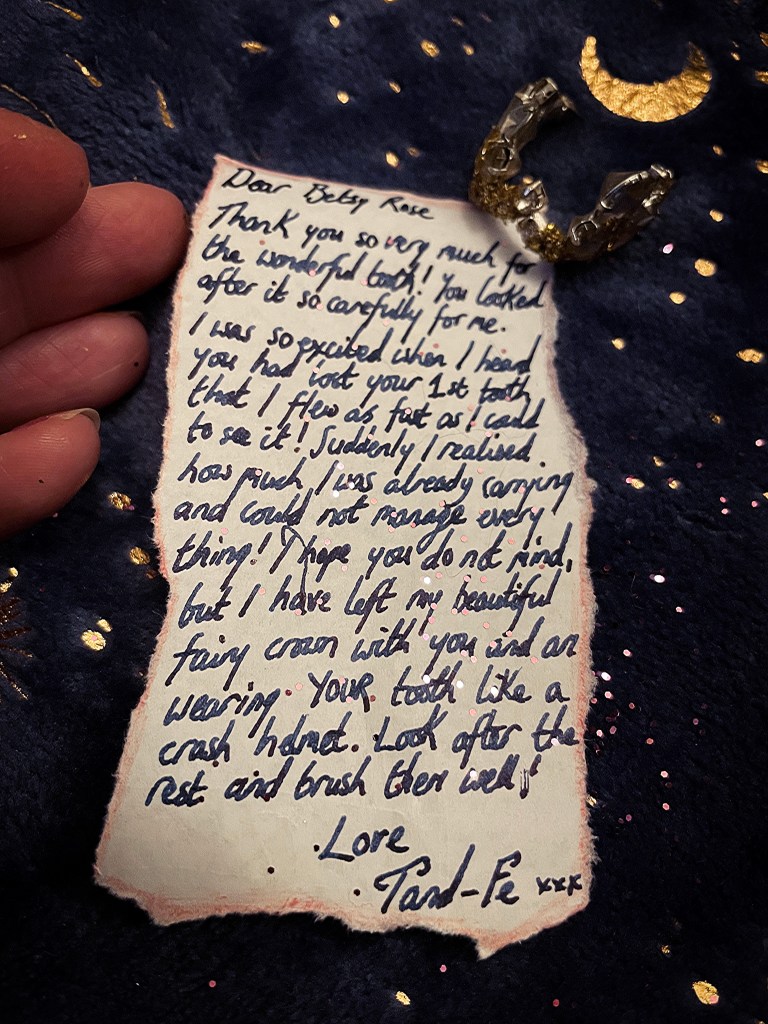 Dear Betsy Rose
Thank you so very much for
the wonderful tooth! You looked
after it so carefully for me.
I was so excited when I heard
you had lost your 1st tooth
that I flew as fast as I could
to see it! Suddenly I realised
how much I was already carrying
and could not manage every
thing! I hope you do not mind,
but I have left my beautiful
fairy crown with you and am
wearing YOUR tooth like a
crash helmet. Look after the
rest and brush them well!
Love
Tand-Fe xxx